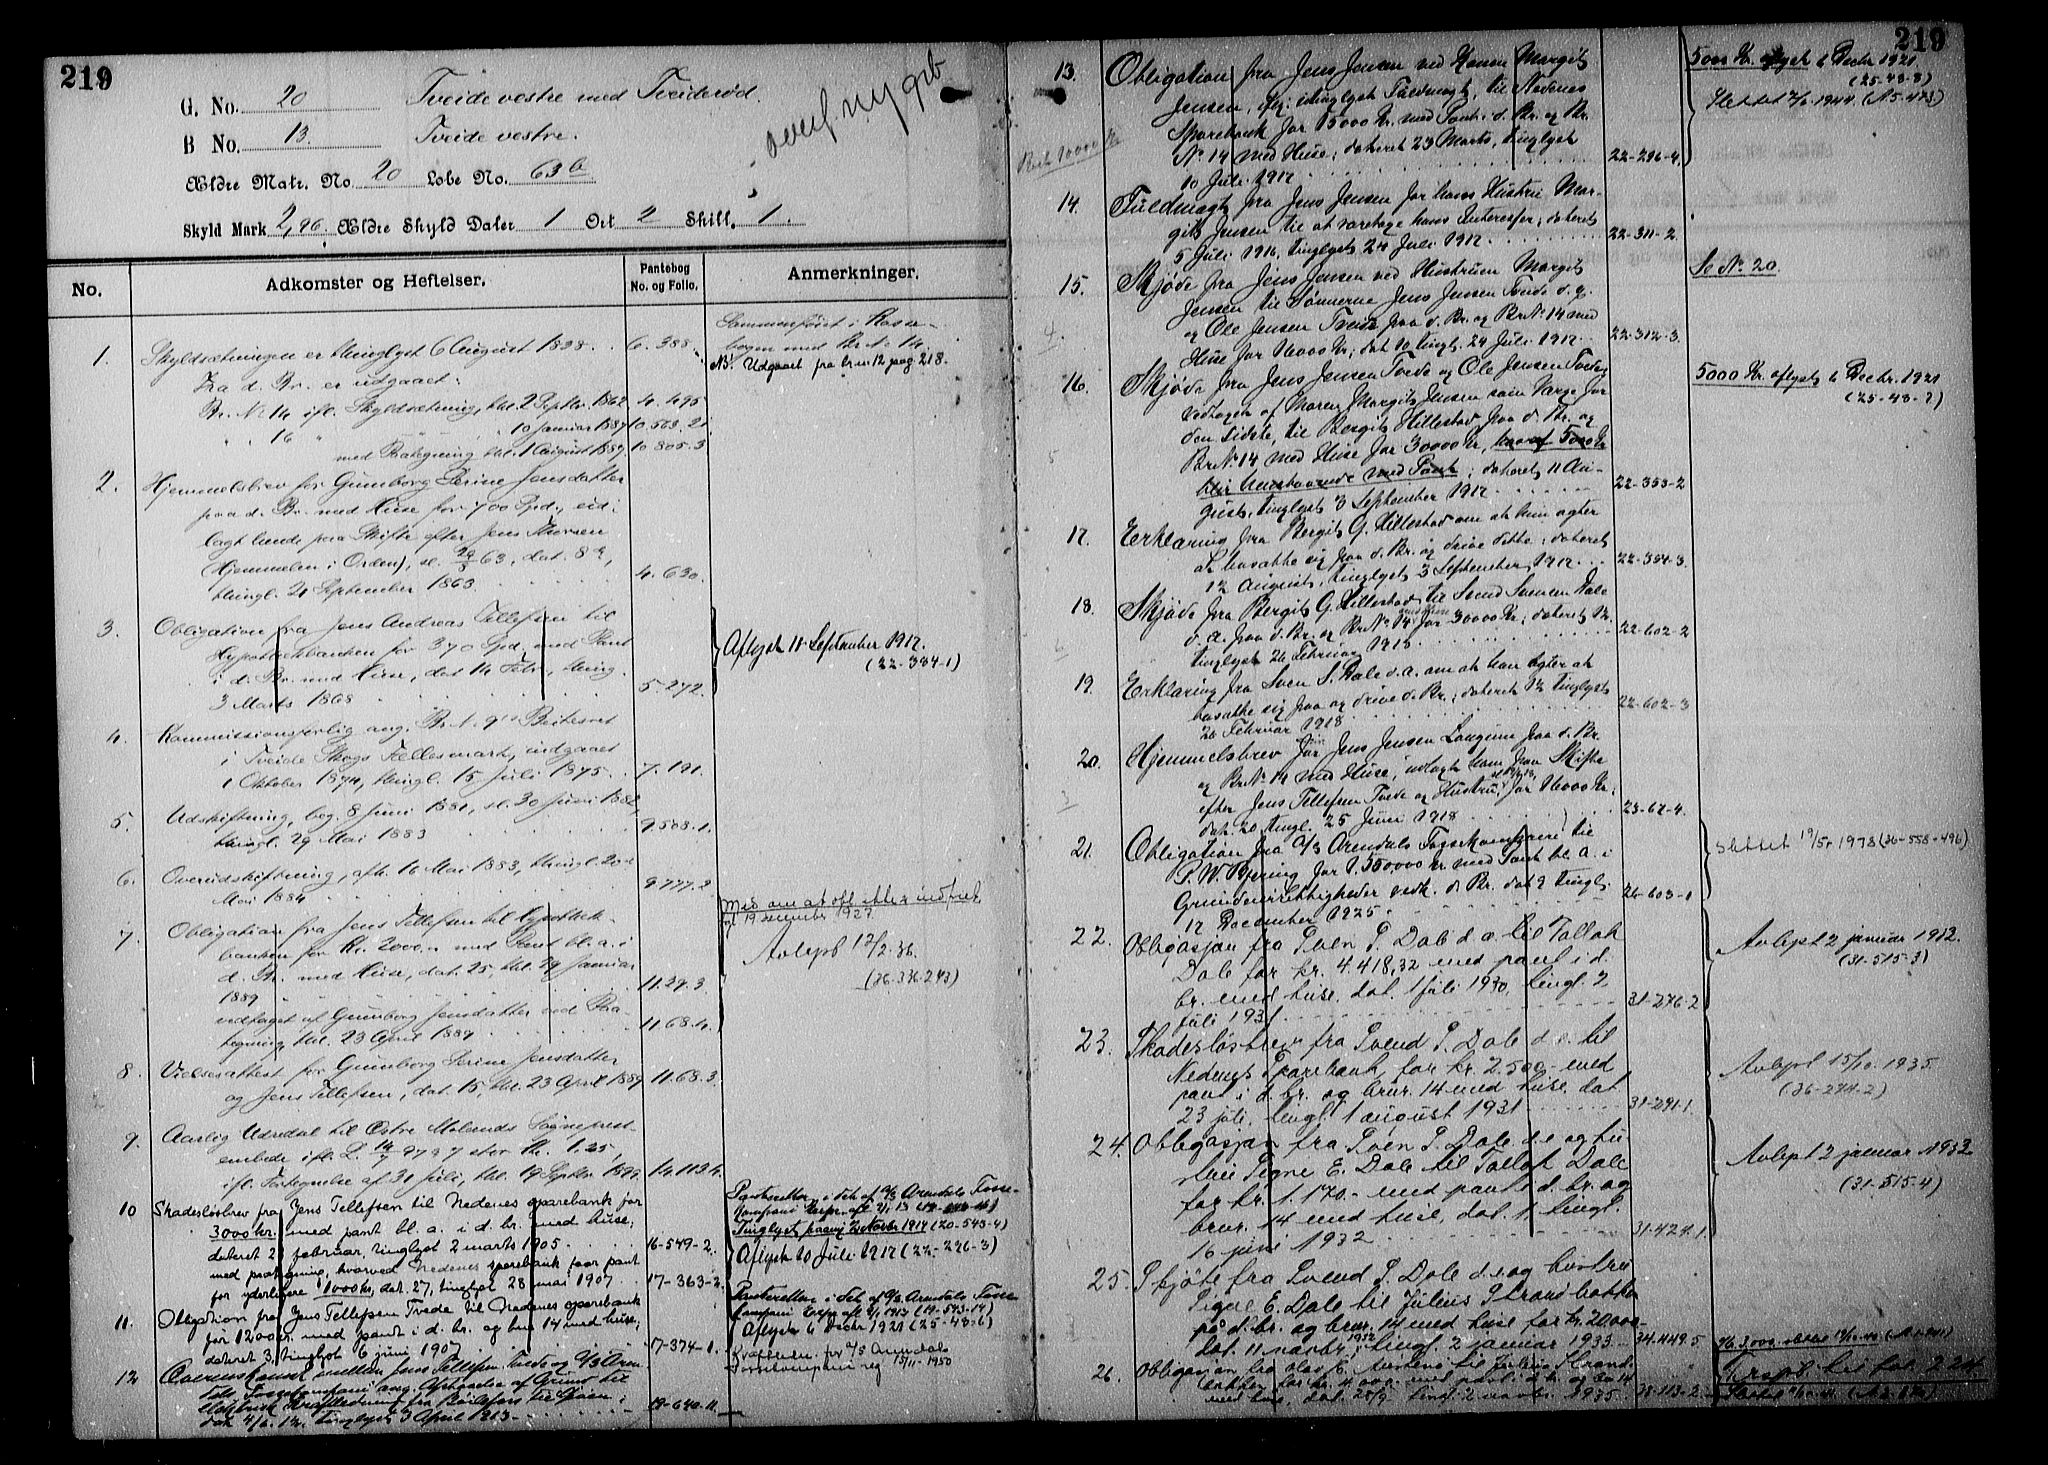 219
G. No. 20 Tveide vestre med Tveiderød.
B No. 13. Tveide vestre.
Ældre Matr. No. 20 Løbe No. 63 b
Skyld Mark 2,96. Ældre Skyld Daler 1 Ort 2 Skill. 1.
overf. ny gnb
No.
Adkomster og Heftelser.
Pantebog
No. og Folio.
Anmerkninger.
1. Skyldsætningen er thinglyst 6 August 1838. 6. 388.
Fra d. Br. er udgaaet:
Br. No 14 ifl. Skyldsætning, thl. 2 Septbr. 1862 4. 495
" " 16 " " " 10 Januar 1887 10.563.
med Paategning thl. 1 August 1887 10 805.3
Sammenføiet i
med Br. No 14.
NB. Udgaaet fra br. nr 12 pag 218.
2. Hjemmelsbrev for Gunborg Serine Jensdatter
paa d. Br. med Huse for 700 Spd., ud-
lagt hende paa Skifte efter Jens
(Hjemmelen i Orden), sl. 63, dat. 8de,
thingl. 21 September 1863 4. 630.
3. Obligation fra Jens Andreas Tellefsen til
Hypothekbanken for 370 Spd. med Pant
i d. Br. med Huse, dat. 14 Febr., thing.
3 Marts 1868 5-272.
Aflyst 11 September 1917.
(22-384-1)
4. Kommissionsforlig ang. Br. No 9's Beitesret
i Tveide Skogs Fellesmark, indgaaet
1 Oktober 1874, thingl. 15 Juli 1875. 7. 191.
5. Udskiftning, beg. 8 Juni 1881, sl. 30 Juni 1882,
thingl. 29 Mai 1883 9.508.1.
6. Overudskiftning, afh. 16 Mai 1883, thingl. 20de
Mai 1884 9.777.2
7. Obligation fra Jens Tellefsen til Hypothek-
banken for Kr. 2000,- med Pant bl. a. i
d. Br. med Huse, dat. 25, thl. 29 Januar
1889 11.29.3.
vedtaget af Gunborg Jensdatter ved Paa-
tegning, thl. 23 April 1889 11.68.4.
19 december 1927
Avlyst 12/2-36.
(36-336-243)
8. Vielsesattest for Gunborg Serine Jensdatter
og Jens Tellefsen, dat. 15, thl. 23 April 1889 11.68.3.
9. Aarlig Udredsel til Østre Molands Sogneprest-
embede ifl. L. 14/7 1797 stor Kr. 1.25,
ifl. Fortegnelse af 31 Juli, thl. 19 Septbr. 1899. 14.113.4.
10 Skadesløsbrev fra Jens Tellefsen til Nedenes sparebank for
3000 kr. med pant bl. a. i d. br. med huse;
dateret 2 februar, tinglyst 2 marts 1905. 16-549-2.
med paategning, hvorved Nedenes sparebank faar pant
for yderligere 1000 kr, dat. 27, tinglyst 28 mai 1907 17-363-2.
Panteretten i det af A/S Arendals Fosse-
Tinglyst paany Novbr 1914 (20-543-4)
Aflyst 10 Juli 1917 (22-296-3)
11. Obligation fra Jens Tellefsen Tvede til Nedenes sparebank
for 1200 kr. med pant i d. br. og bno 14 med huse;
dateret 3, tinglyst 6 juni 1907 17-374-1.
Panteretten i det af A/S Arendals Fosse-
Aflyst 6 Decbr 1921 (25-48-6)
12 Overenskomst mellem Jens Tellefsen Tvede og A/S Aren-
dals Fossekompani ang. Afstaaelse af Grund til
elektrisk Kraftledning fra Bøilefoss til
dat. 4/6 12. Tinglyst 3 April 1913 19-640-11.
Kraftledn. for A/S Arendals
Fossekompani reg 15/11-1950
219
13. Obligation fra Jens Jensen ved Konen Margit
Jensen, iflg. tinglyst Fuldmagt, til Nedenes
Sparebank for 15000 Kr. med Pant i d. Br. og Br.
No 14 med Huse; dateret 23 Marts, tinglyst
10 Juli 1917 22-296-4.
5000 Kr. aflyst 6 Decbr 1921
(25-48-8)
Slettet 2/6 1944. (A5-473)
14. Fuldmagt fra Jens Jensen for hans Hustru Mar-
git Jensen til at varetage hans Interesser; dateret
5 Juli 1916, tinglyst 24 Juli 1917. 22-311-2.
15. Skjøde fra Jens Jensen ved Hustruen Margit
Jensen til Sønnerne Jens Jensen Tveide d. y.
og Ole Jensen Tveide paa d. Br. og Br No 14 med
Huse for 16000 Kr; dat. 10 tingl. 24 Juli 1917. 22-312-3.
Se No 20.
16. Skjøde fra Jens Jensen Tvede og Ole Jensen Tvede,
vedtaget af Maren Margit Jensen som Værge for
den sidste, til Bergit Hillestad paa d. Br. og
Br No 14 med Huse for 30000 Kr, hvoraf 5000 Kr
blir henstaaende med Pant; dateret 11 Au-
gust, tinglyst 3 September 1917 22-353-2
5000 Kr. aflyst 6 Decbr. 1921
(25-48-7)
17. Erklæring fra Bergit G. Hillestad om at hun agter
at bosætte sig paa d. Br. og drive dette; dateret
12 August, tinglyst 3 September 1917. 22-354-3.
18. Skjøde fra Bergit G. Hillestad til Svend Svensen Dale
d. a. paa d. Br. og Br No 14 med Huse for 30000 Kr; dateret 12
tinglyst 26 Februar 1918. 22-602-2
19. Erklæring fra Sven S. Dale d. a. om at han agter at
bosætte sig paa og drive d. Br.; dateret 12 tinglyst
26 Februar 1918 22-602-3
20. Hjemmelsbrev for Jens Jensen Longum paa d. Br.
og Br No 14 med Huse, udlagt ham paa Skifte
efter Jens Tellefsen Tvede og Hustru, for 16000 Kr.;
dat. 20, tingl. 25 Juni 1918 23-67-4.
21. Obligation fra A/S Arendals Fossekompani til
P. W. for 1.350000 Kr med Pant bl. a. i
Grundeierrettigheder vedk. d. Br. dat 9 tingl.
17 December 1925 26-603-1
Slettet 19/5-1978 (36-558-496)
22. Obligasjon fra Sven S. Dale d. e. til Tallak
Dale for kr. 4.418,32 med pant i d.
br. med huse, dat. 1 juli 1930, tingl. 2
juli 1931 31-276-2
Avlyst 2 januar 1932.
(31-515-3)
23. Skadesløsbrev fra Svend S. Dale d. e. til
Nedenes Sparebank, for kr. 2.500,- med
pant i d. br. og brnr. 14 med huse, dat
23 juli, tingl. 1 august 1931 31-291-1.
Avlyst 15/10. 1935.
(36-274-2)
24. Obligasjon fra Sven S. Dale d. e og hu-
stru Signe E. Dale til Tallak Dale
for kr. 1.170.- med pant i d. br. og
brnr. 14 med huse, dat. 11 tingl.
16 juni 1932 31-424-1.
Avlyst 2 januar 1932
(31-515-4)
25. Skjøte fra Svend S. Dale d. e og hustru
Signe E. Dale til Julius Strandbakken
på d. br. og brnr. 14 med huse for kr. 20000
dat. 11 novbr. 1932 tingl. 2 januar 1933 34.449.5
26. Obligasjon fra Olav E. til Julius Strand-
bakken for kr. med pant i d. br. og brnr 14
med huse, dat. 28/9- tingl. 2 novbr. 1935 38-113-2
Forts. her fol. 224